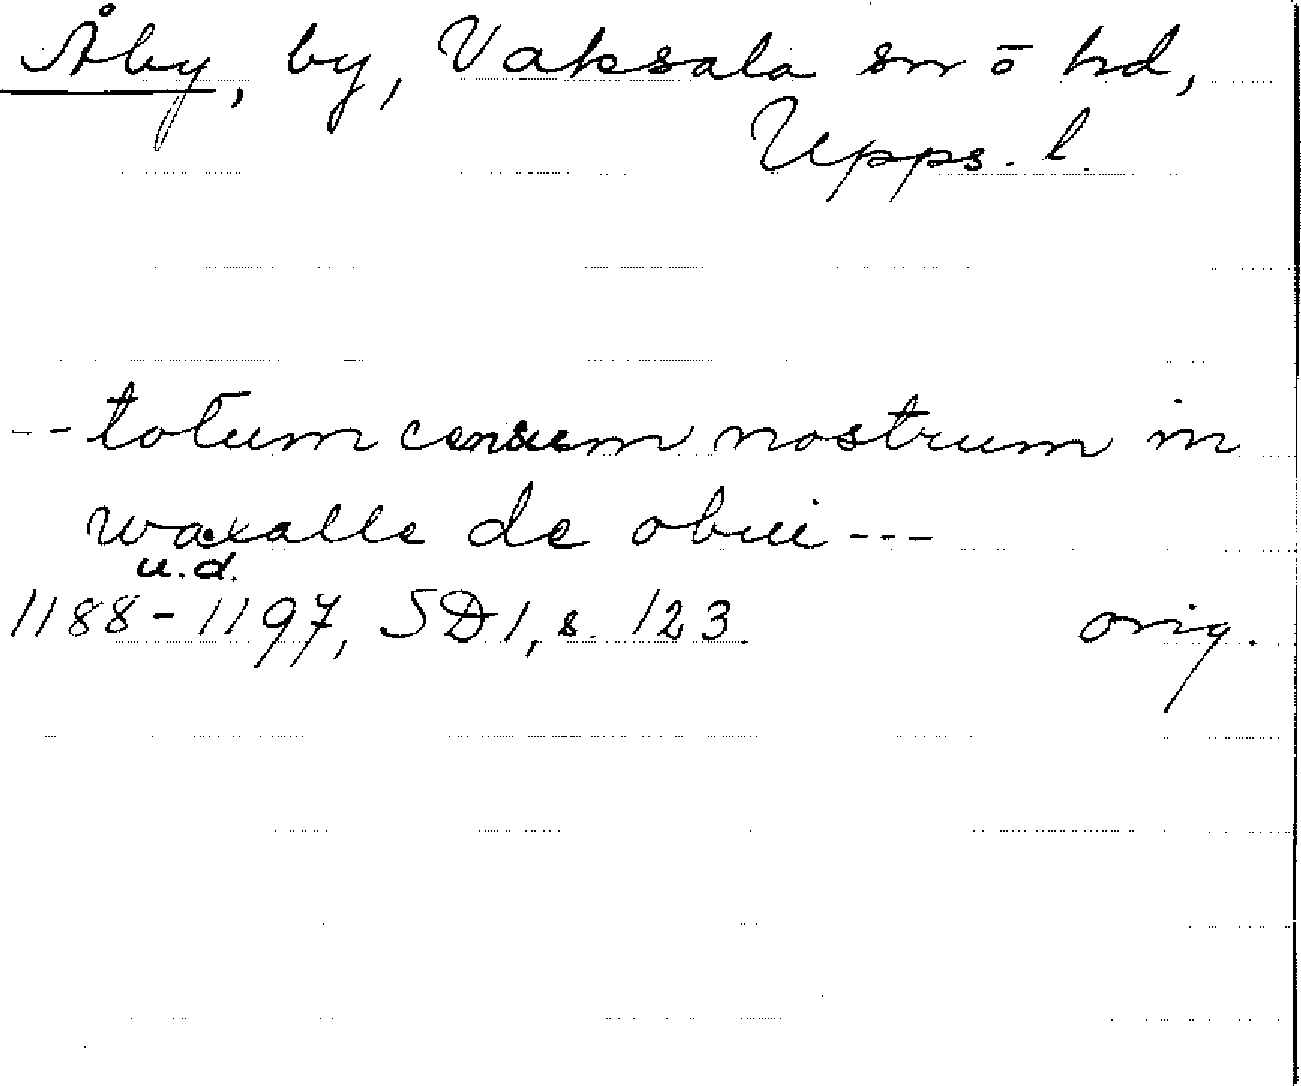 Åby, by, Vaksala sn o hd,
Upps. l.
-- totum censum nostrum in
waxalle de obui ---
u.d.
1188-1197, SD 1, s. 123. orig.